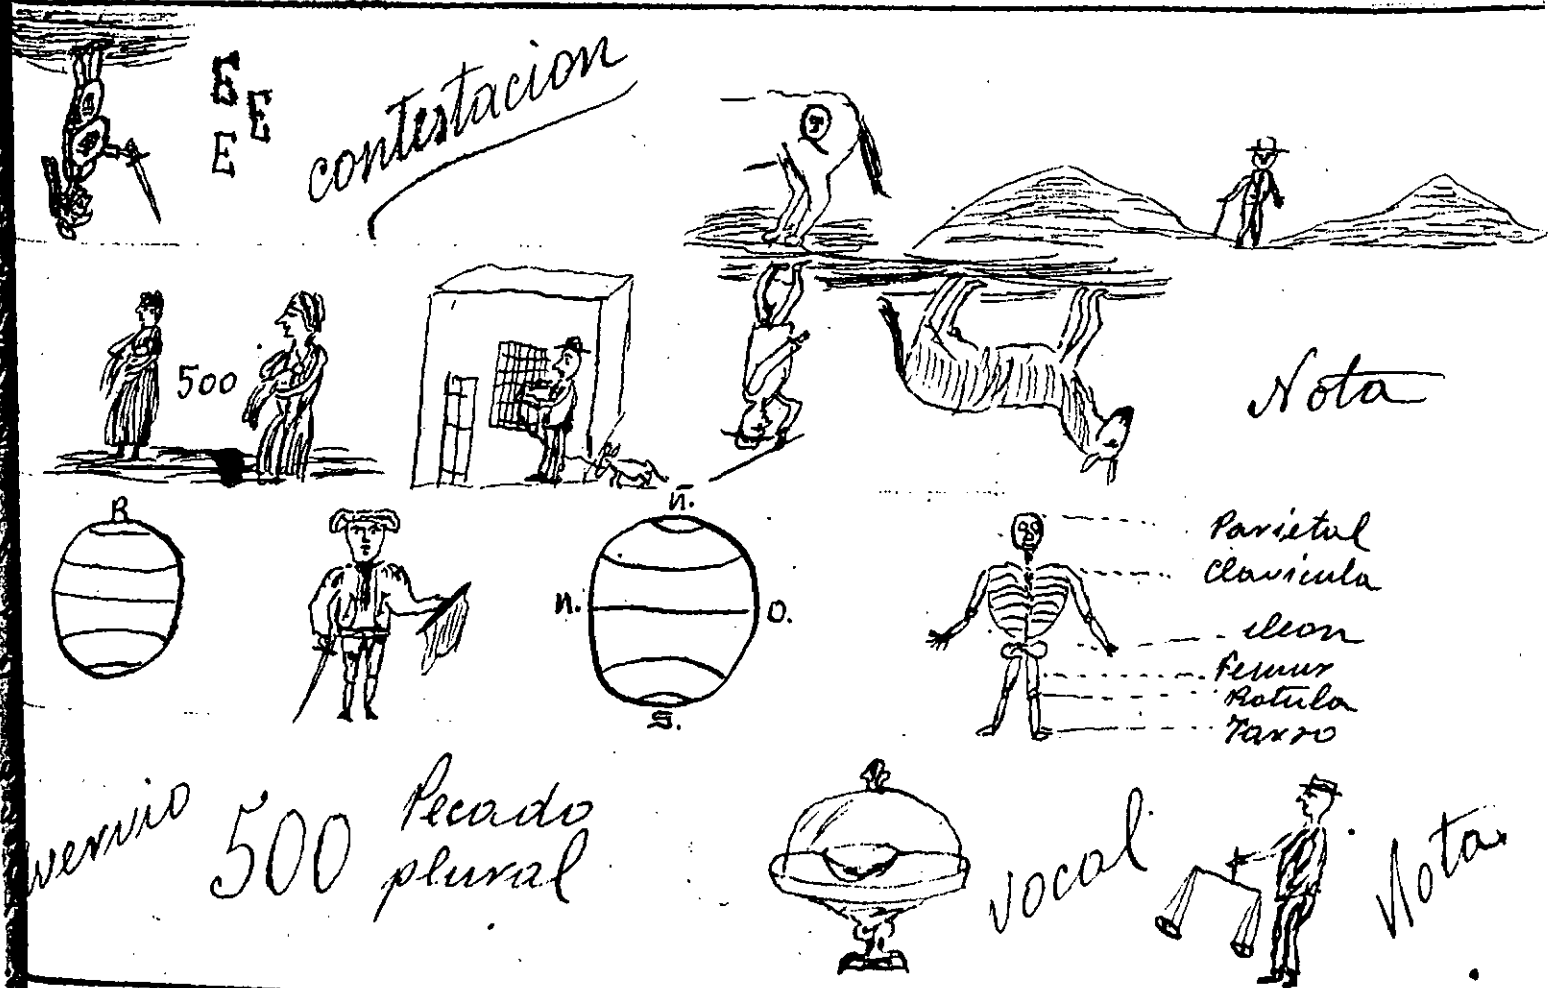 E
E
E
contestacion
500
Nota
R
N.
n.
O.
S.
Parietal
Clavicula
ileon
Femur
Rotula
Tarso
500
Pecado
plural
vocal
Nota